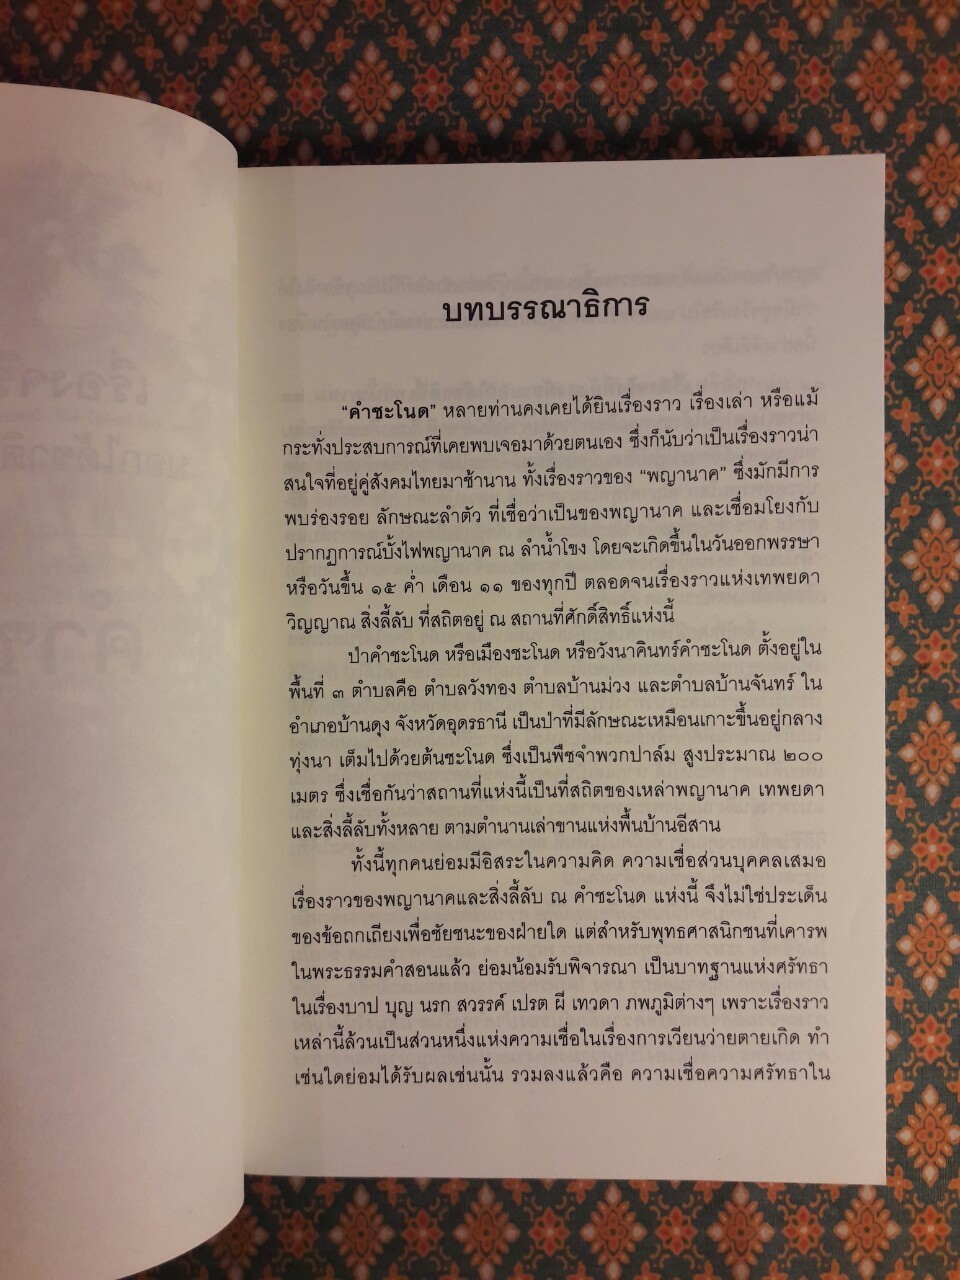 บทบรรณาธิการ
“คำชะโนด” หลายท่านคงเคยได้ยินเรื่องราว เรื่องเล่า หรือแม้
กระทั่งประสบการณ์ที่เคยพบเจอมาด้วยตนเอง ซึ่งก็นับว่าเป็นเรื่องราวน่า
สนใจที่อยู่คู่สังคมไทยมาช้านาน ทั้งเรื่องราวของ “พญานาค” ซึ่งมักมีการ
พบร่องรอย ลักษณะลำตัว ที่เชื่อว่าเป็นของพญานาค และเชื่อมโยงกับ
ปรากฏการณ์บั้งไฟพญานาค ณ ลำน้ำโขง โดยจะเกิดขึ้นในวันออกพรรษา
หรือวันขึ้น ๑๕ ค่ำ เดือน ๑๑ ของทุกปี ตลอดจนเรื่องราวแห่งเทพยดา
วิญญาณ สิ่งลี้ลับ ที่สถิตอยู่ ณ สถานที่ศักดิ์สิทธิ์แห่งนี้
ป่าคำชะโนด หรือเมืองชะโนด หรือวังนาคินทร์คำชะโนด ตั้งอยู่ใน
พื้นที่ ๓ ตำบลคือ ตำบลวังทอง ตำบลบ้านม่วง และตำบลบ้านจันทร์ ใน
อำเภอบ้านดุง จังหวัดอุดรธานี เป็นป่าที่มีลักษณะเหมือนเกาะขึ้นอยู่กลาง
ทุ่งนา เต็มไปด้วยต้นชะโนด ซึ่งเป็นพืชจำพวกปาล์ม สูงประมาณ ๒๐๐
เมตร ซึ่งเชื่อกันว่าสถานที่แห่งนี้เป็นที่สถิตของเหล่าพญานาค เทพยดา
และสิ่งลี้ลับทั้งหลาย ตามตำนานเล่าขานแห่งพื้นบ้านอีสาน
ทั้งนี้ทุกคนย่อมมีอิสระในความคิด ความเชื่อส่วนบุคคลเสมอ
เรื่องราวของพญานาคและสิ่งลี้ลับ ณ คำชะโนด แห่งนี้ จึงไม่ใช่ประเด็น
ของข้อถกเถียงเพื่อชัยชนะของฝ่ายใด แต่สำหรับพุทธศาสนิกชนที่เคารพ
ในพระธรรมคำสอนแล้ว ย่อมน้อมรับพิจารณา เป็นบาทฐานแห่งศรัทธา
ในเรื่องบาป บุญ นรก สวรรค์ เปรต ผี เทวดา ภพภูมิต่างๆ เพราะเรื่องราว
เหล่านี้ล้วนเป็นส่วนหนึ่งแห่งความเชื่อในเรื่องการเวียนว่ายตายเกิด ทำ
เช่นใดย่อมได้รับผลเช่นนั้น รวมลงแล้วคือ ความเชื่อความศรัทธาใน